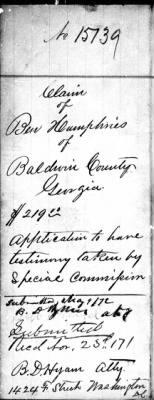 No 15739
Claim
of
Ben Humphries
of
Baldwin County
Georgia
$219 00
Application to have
testimony taken by
Special Commission
Submitted May 1872
B. D. Hyam atty
Submitted
Filed Nov. 23d 1871
B. D. Hyam Atty.
1424 F. Street Washington
D.C.